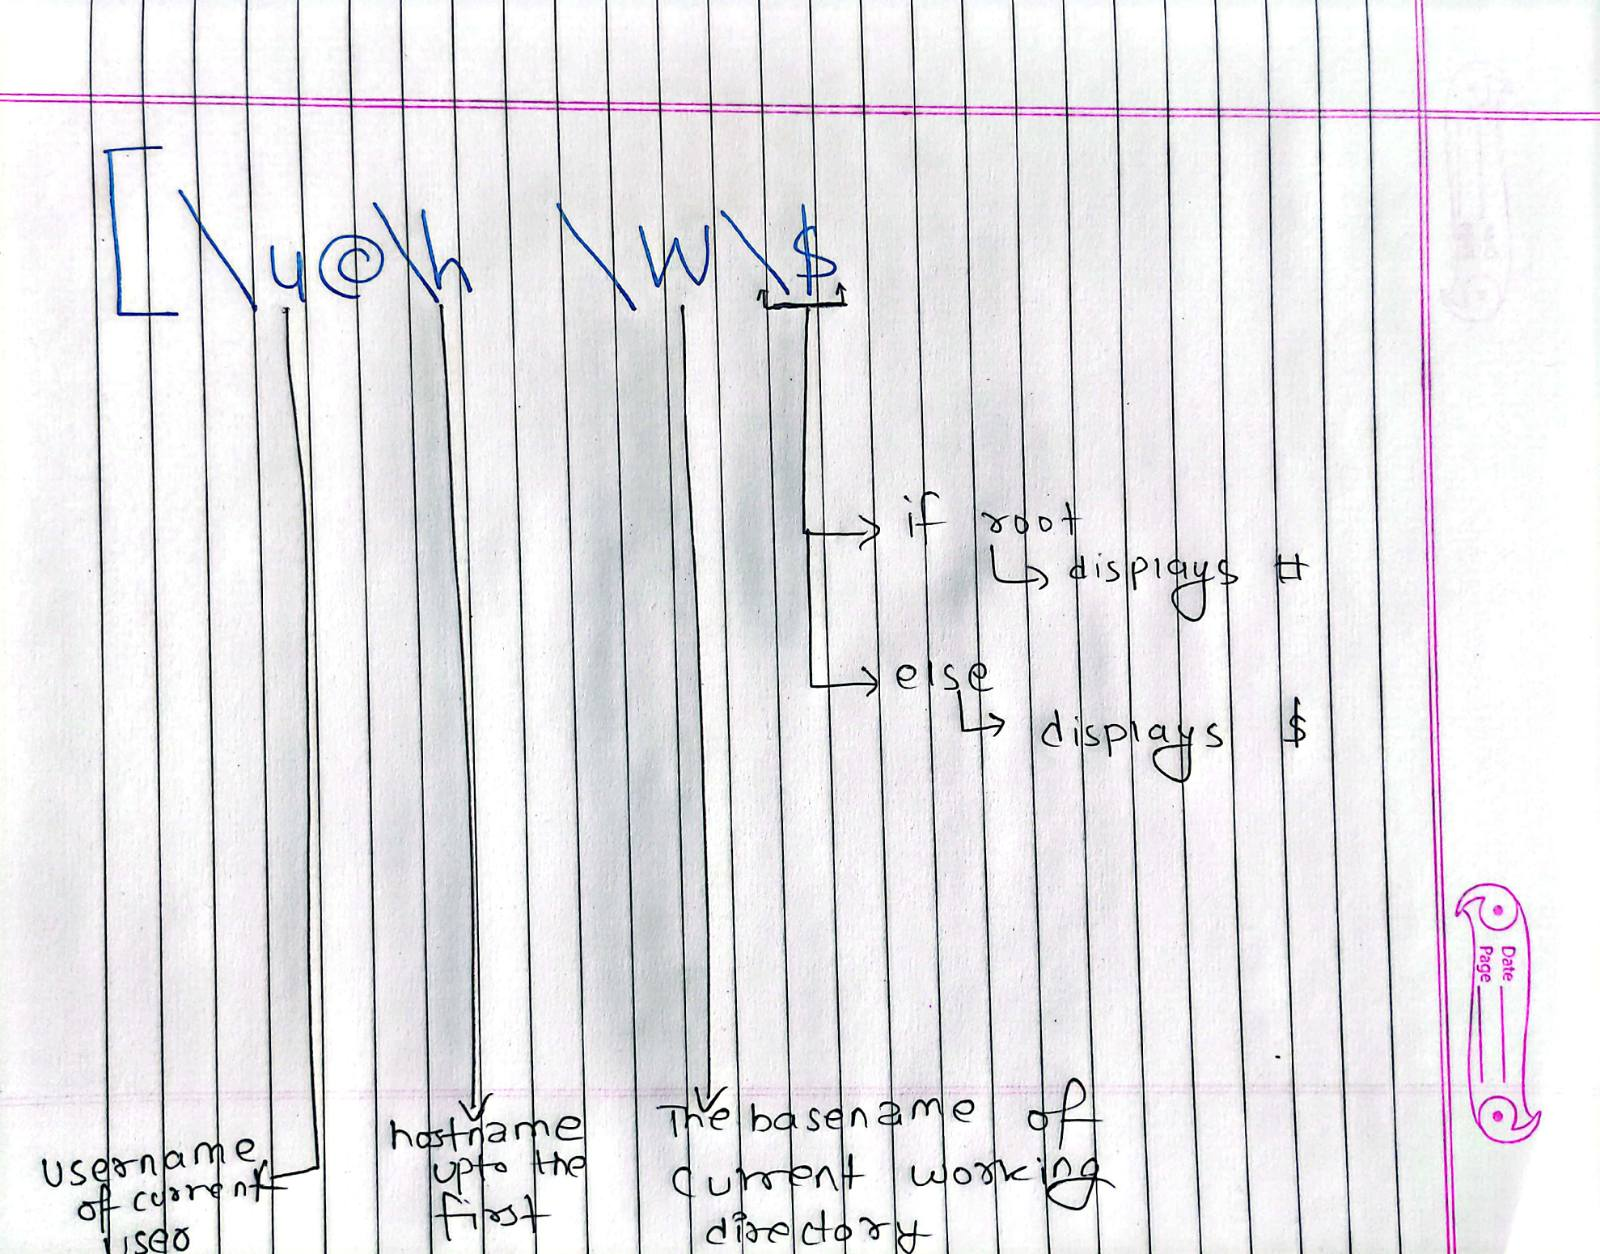 [ \u@\h \W\$
if root
displays #
else
displays $
username
of current
user
hostname
upto the
first
The basename of
current working
directory
Date
Page